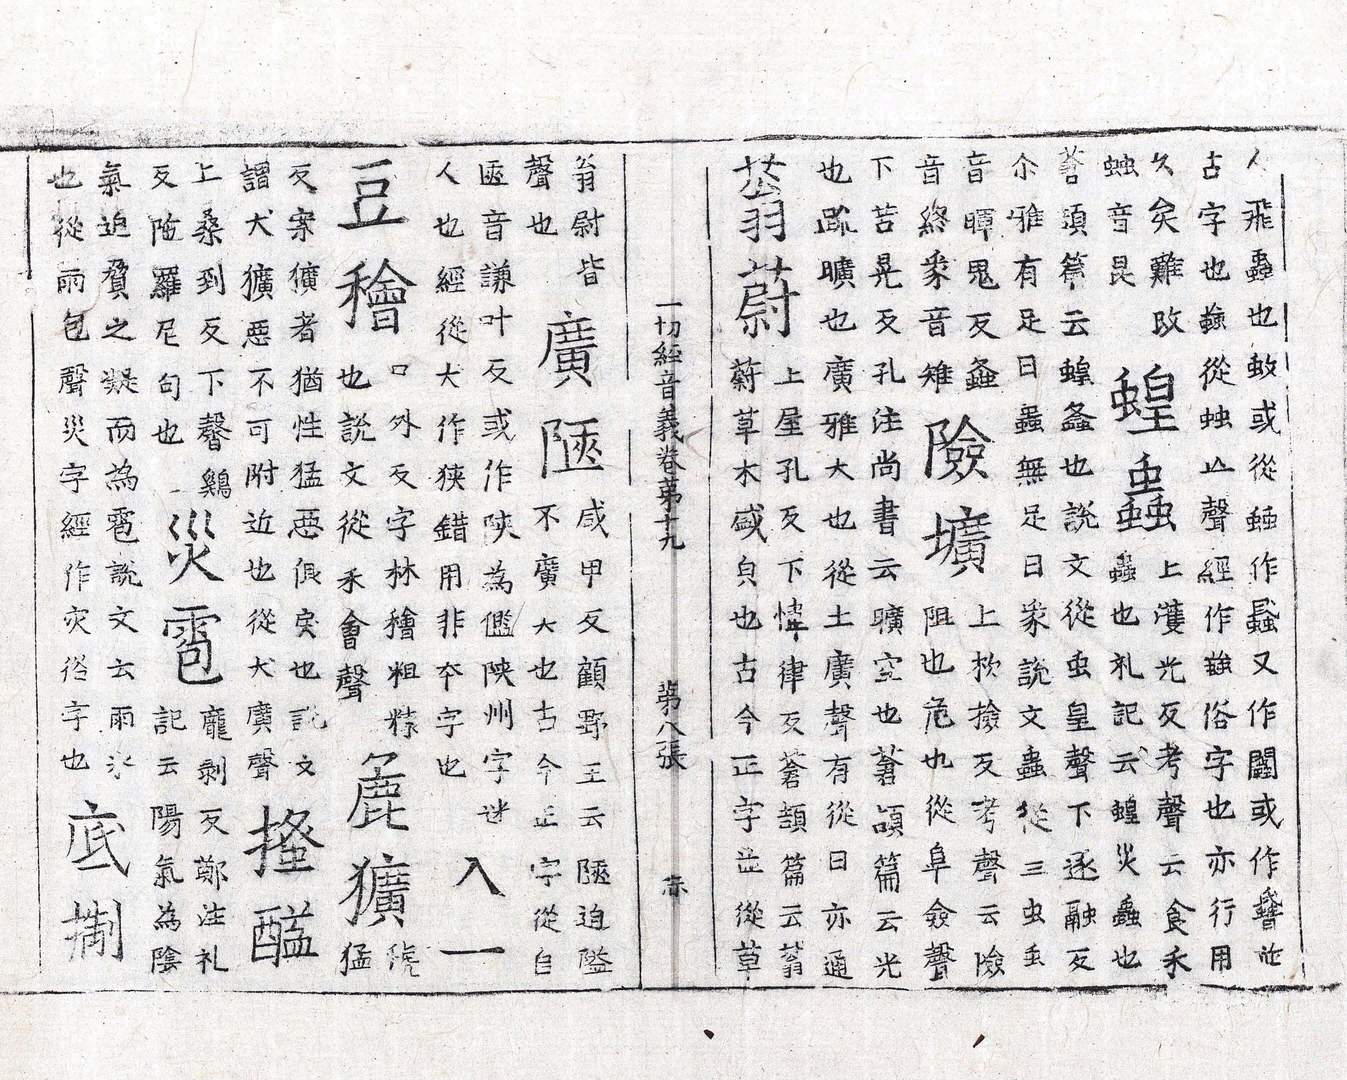 人飛蟲也蚊或從䖵作蟁又作閺或作𧖪並
古字也𧍒從䖵亡聲經作𧍒俗字也亦行用
久矣難改
䖵音昆
蝗蟲
上濩光反考聲云食禾
蟲也礼記云蝗災蟲也
蒼頡篇云蝗螽也說文從虫皇聲下逐融反
尒雅有足曰蟲無足曰豸說文蟲從三虫虫
音暉鬼反螽
音終豸音雉
險壙
上杴撿反考聲云險
阻也危也從阜僉聲
下苦晃反孔注尚書云曠空也蒼頡篇云光
也疏曠也廣雅大也從土廣聲有從日亦通
蓊蔚
上屋孔反下惲律反蒼頡篇云蓊
蔚草木盛皃也古今正字並從草
一切經音義卷第十九 第八張 亦
翁尉皆
聲也
廣陿
咸甲反顧野王云陿迫隘
不廣大也古今正字從𨸏
匧音謙叶反或作陝為儖陝州字迷
人也經從犬作狹錯用非夲字也
入一
豆穬
口外反字林穭粗糠
也說文從禾會聲
麁獷
虢猛
反案獷者猶性猛惡佷戾也說文
謂犬獷惡不可附近也從犬廣聲
搔𨣻
上桑到反下聲鷄
反陁羅尼句也
災雹
龐剥反鄭注礼
記云陽氣為陰
氣迫脅之凝而為雹說文云雨氷
也從雨包聲災字經作灾俗字也
底搊